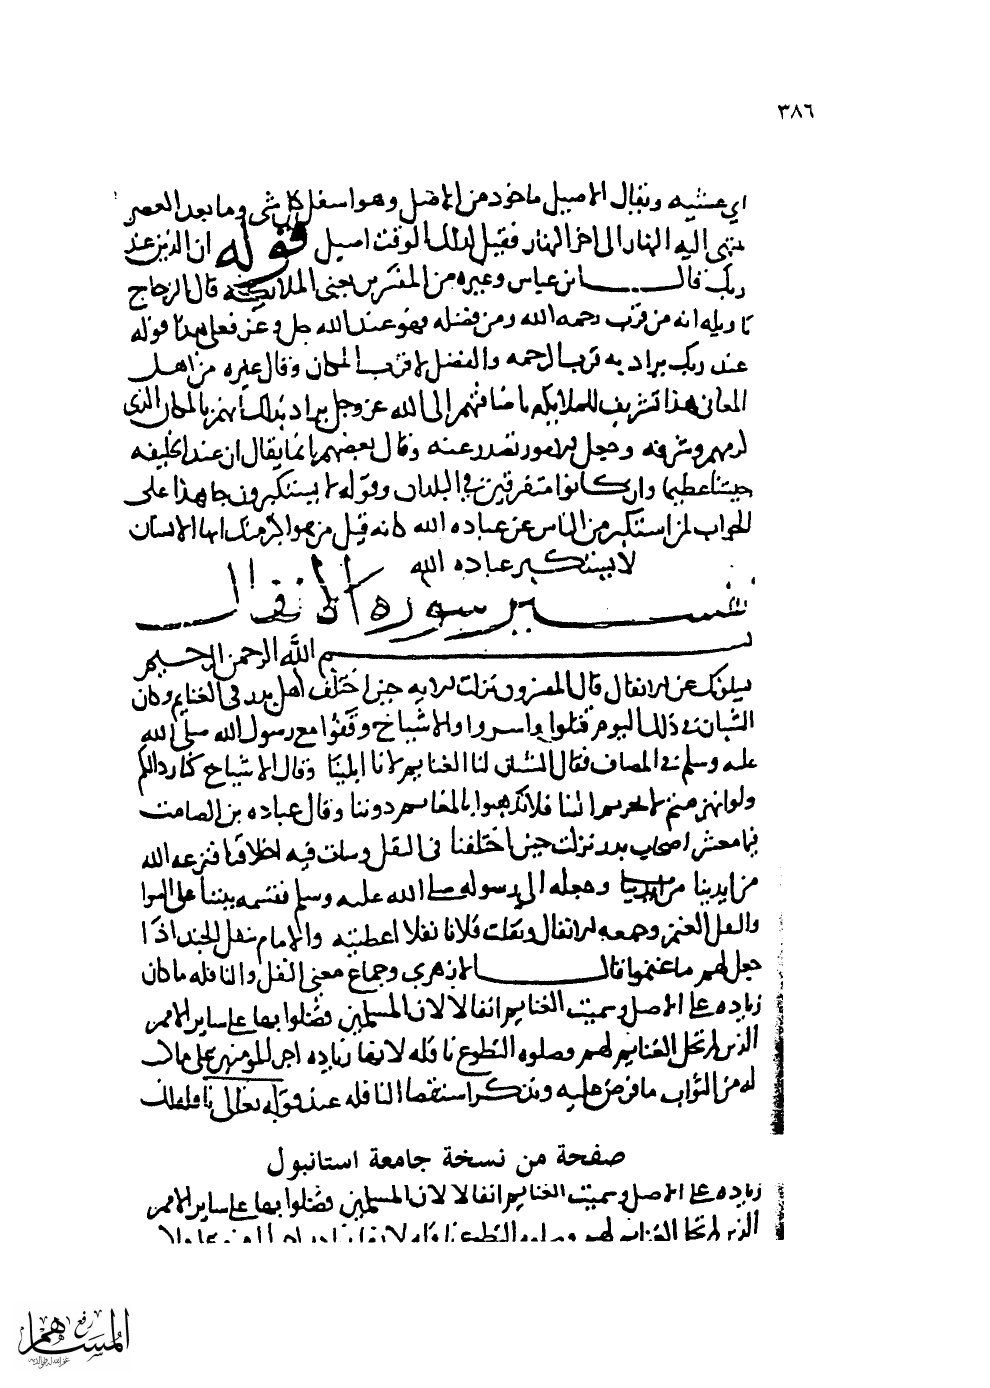 ٣٨٦
اي عشيه ويقال الاصيل ماخوذ من الاصل وهو اسفل كل شي وما بعد العصر
ينتهي اليه النهار الى اخر النهار فقيل لذلك الوقت اصيل قوله ان الذين عند
ربك قال ابن عباس وغيره من المفسرين يعني الملايكه قال الزجاج
تاويله انه من قرب رحمه الله ومن فضله فهو عند الله جل وعز فعلى هذا قوله
عند ربك يراد به قرب الرحمه والفضل لا قرب المكان وقال غيره من اهل
المعاني هذا تشريف للملايكه باضافتهم إلى الله عز وجل يراد بذلك انهم بالمكان الذي
وشرفه وجعل الامور تصدر عنه وقال بعضهم انما يقال ان عند الخليفه
جيشا عظيما وان كانوا متفرقين في البلدان وقوله لا يستكبرون جا هذا على
الجواب لمن استكبر من الناس عن عباده الله كانه قيل من هو اكبر منك ايها الانسان
لا يستكبر عن عباده الله
تفسير سوره الانفال
بسم الله الرحمن الرحيم
يسلونك عن الانفال قال المفسرون نزلت الايه حين اختلف أهل بدر في الغنايم وكان
الشبان في ذلك اليوم قتلوا واسروا والاشياخ وقفوا مع رسول الله صلى الله
عليه وسلم في المصاف فقال الشبان لنا الغنايم لانا ابلينا وقال الاشياخ كنا ردا لكم
ولو انهزمتم لانحزتم الينا فلا تذهبوا بالمغانم دوننا وقال عباده بن الصامت
فينا معشر اصحاب بدر نزلت حين اختلفنا في النفل وسات فيه اخلاقنا فنزعه الله
من ايدينا وجعله الى رسوله صلى الله عليه وسلم فقسمه بيننا على السوا
والنفل الغنم وجمعه الانفال ونفلت فلانا نفلا اعطيته والامام ينفل الجند اذا
جعل لهم ما غنموا قال الازهري وجماع معنى النفل والنافله ما كان
زياده على الاصل وسميت الغنايم انفالا لان المسلمين فضلوا بها على ساير الامم
الذين لم تحل الغنايم لهم وصلوه التطوع نافله لانها زياده اجر للمومنين على ما كتب
له من الثواب ما فرض عليه وتذكر استقصا النافله عند قوله تعالى نافله لك
صفحة من نسخة جامعة استانبول
زياده على الاصل وسميت الغنايم انفالا لان المسلمين فضلوا بها على ساير الامم
الذين لم تحل الغنايم لهم وصلوه التطوع نافله لانها زياده
رفع
المساهم